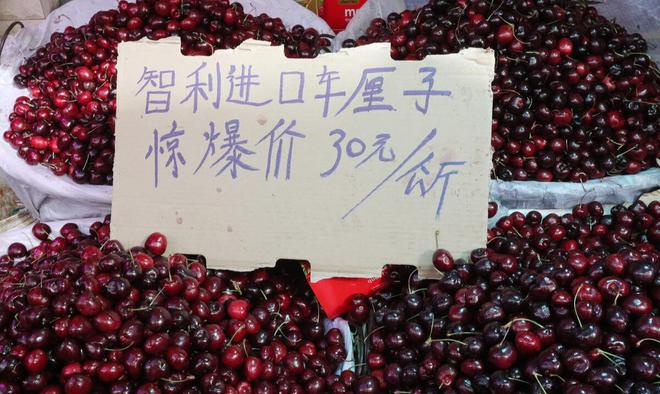 智利进口车厘子
惊爆价 30元/公斤